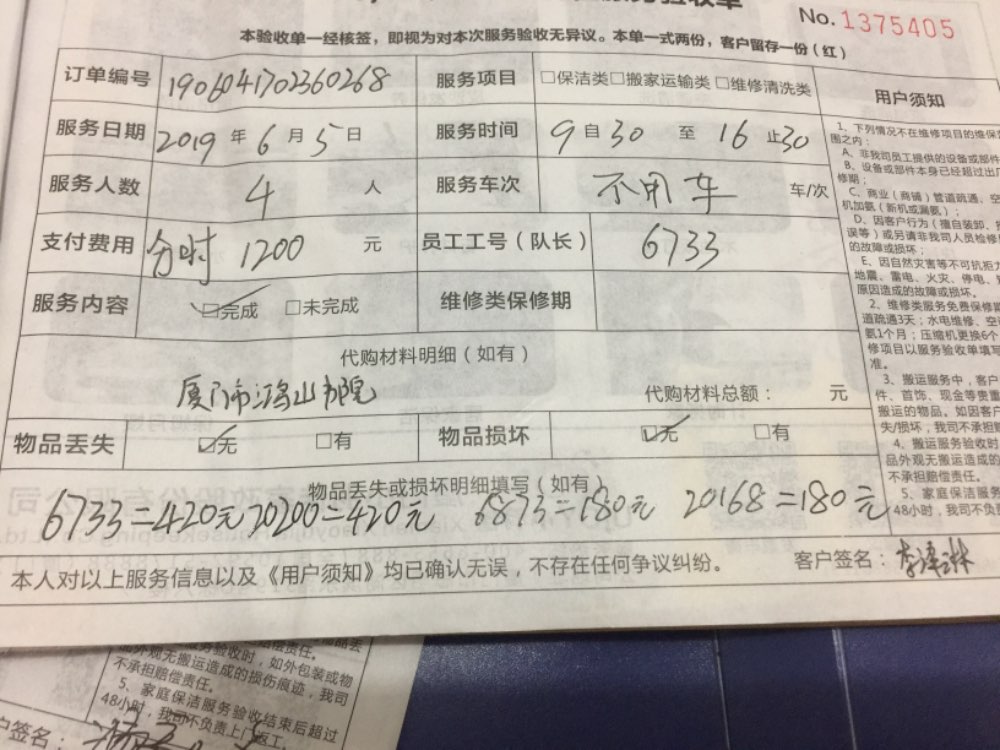 No. 1375405
本验收单一经核签，即视为对本次服务验收无异议。本单一式两份，客户留存一份（红）
订单编号 1906041702360268 服务项目 □保洁类□搬家运输类□维修清洗类
用户须知
服务日期 2019 年 6 月 5 日 服务时间 9 自 30 至 16 止 30
服务人数 4 人 服务车次 不用车 车/次
支付费用 分时 1200 元 员工工号（队长） 6733
服务内容 ☑完成 □未完成 维修类保修期
代购材料明细（如有）
厦门市鸿山书院 代购材料总额： 元
物品丢失 ☑无 □有 物品损坏 ☑无 □有
物品丢失或损坏明细填写（如有）
6733=420元 20200=420元 6873=180元 20168=180元
本人对以上服务信息以及《用户须知》均已确认无误，不存在任何争议纠纷。 客户签名：
1、下列情况不在维修项目的维保范
围之内：
A、非我司员工提供的设备或部件
B、设备或部件本身已经超过出厂
修期；
C、商业（商铺）管道疏通、空
机加氨（新机或漏氨）；
D、因客户行为（擅自装卸、
误等）或另请非我司人员检修
的故障或损坏；
E、因自然灾害等不可抗拒力
地震、雷电、火灾、停电、
原因造成的故障或损坏。
2、维修类服务免费保修期
道疏通3天；水电维修、空
氨1个月；压缩机更换6个
修项目以服务验收单填写
准。
3、搬运服务中，客户
件、首饰、现金等贵重
搬运的物品。如因客户
失/损坏，我司不承担赔
4、搬运服务验收时
品外观无搬运造成的
担赔偿责任。
5、家庭保洁服务
48小时，我司不负
验收时，如外包装或物
品外观无搬运造成的损伤痕迹，我司
不承担赔偿责任。
5、家庭保洁服务验收结束后超过
48小时，我司不负责上门返工。
户签名：